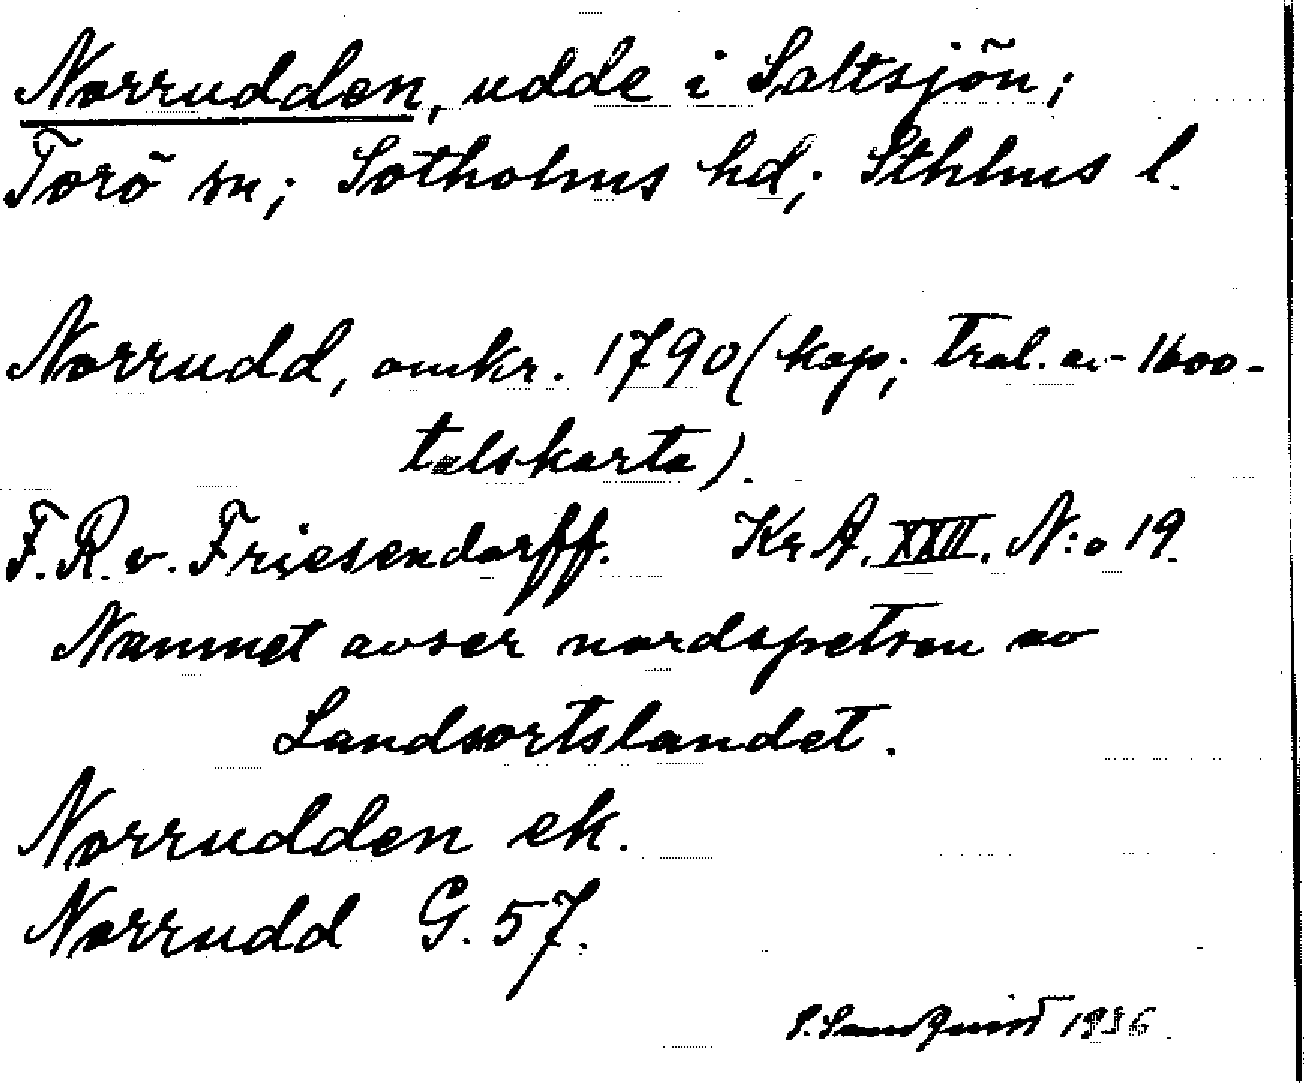 Norrudden, udde i Saltsjön;
Torö sn; Sotholms hd; Sthlms l.
Norrudd, omkr. 1790 (kop; trol. av 1600-
talskarta).
F. R. v. Friesendorff. KrA. XXII. N:o 19.
Namnet avser nordspetsen av
Landsortslandet.
Norrudden ek.
Norrudd G. 57.
1936